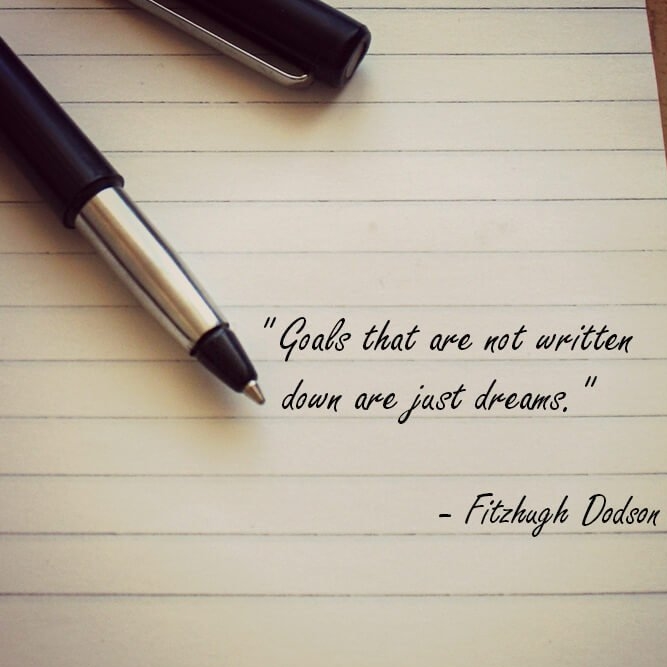 "Goals that are not written
down are just dreams."
- Fitzhugh Dodson